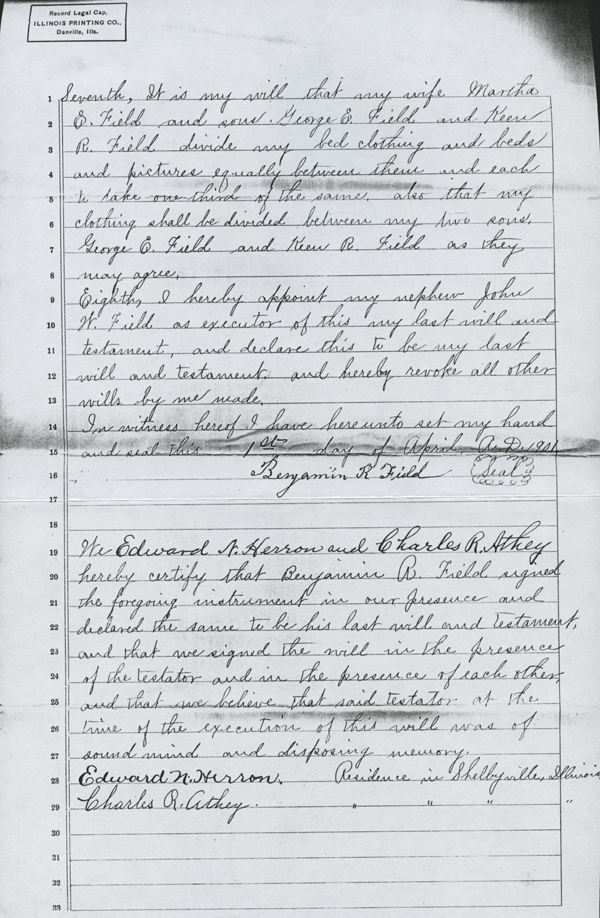 Record Legal Cap.
ILLINOIS PRINTING CO.,
Danville, Ills.
1 Seventh, It is my will that my wife Martha
2 E. Field and sons George E. Field and Keen
3 R. Field divide my bed clothing and beds
4 and pictures equally between them and each
5 to take one-third of the same. also that my
6 clothing shall be divided between my two sons.
7 George E. Field and Keen R. Field as they
8 may agree.
9 Eighth, I hereby appoint my nephew John
10 W. Field as executor of this my last will and
11 testament, and declare this to be my last
12 will and testament. and hereby revoke all other
13 wills by me made.
14 In witness hereof I have hereunto set my hand
15 and seal this 1st day of April, A.D. 1921
16 Benjamin R Field (Seal)
17
18
19 We Edward N. Herron and Charles R. Athey
20 hereby certify that Benjamin R. Field signed
21 the foregoing instrument in our presence and
22 declared the same to be his last will and testament,
23 and that we signed the will in the presence
24 of the testator and in the presence of each other,
25 and that we believe that said testator at the
26 time of the execution of this will was of
27 sound mind and disposing memory.
28 Edward N. Herron. Residence in Shelbyville, Illinois
29 Charles R. Athey. " " " "
30
31
32
33